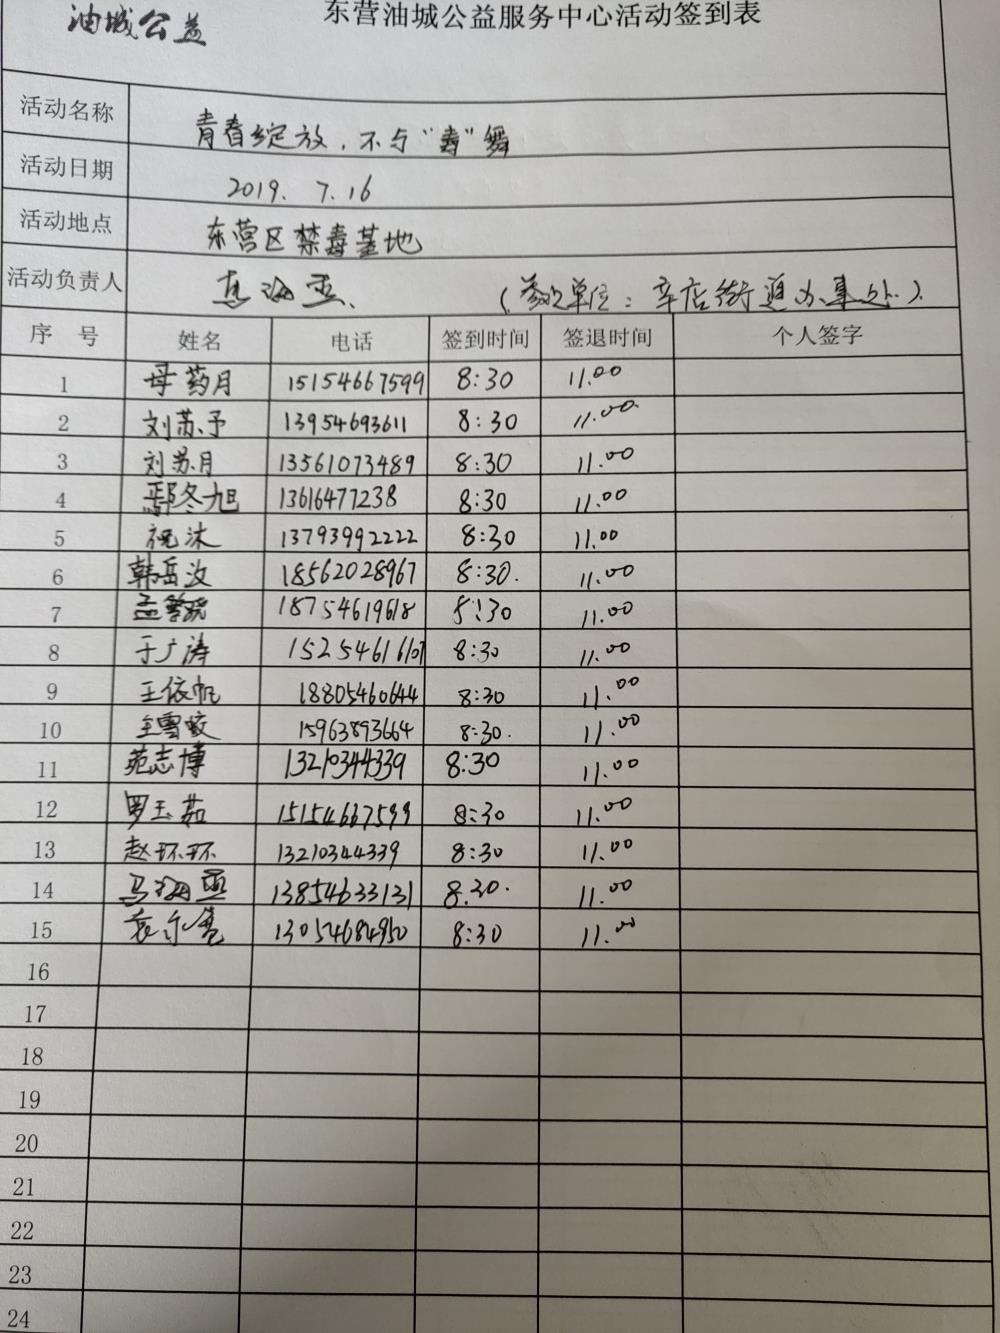 油城公益
东营油城公益服务中心活动签到表
活动名称 青春绽放，不与“毒”舞
活动日期 2019. 7.16
活动地点 东营区禁毒基地
活动负责人 海亚. (参加单位：辛店街道办事处).
序 号 姓名 电话 签到时间 签退时间 个人签字
1 母药月 15154667599 8:30 11.00
2 刘苏予 13954693611 8:30 11.00
3 刘苏月 13561073489 8:30 11.00
4 鄢冬旭 13616477238 8:30 11.00
5 祝沐 13793992222 8:30 11.00
6 韩岳汝 18562028967 8:30. 11.00
7 孟 18754619618 8:30 11.00
8 于广涛 15254616107 8:30 11.00
9 王依帆 18805460644 8:30 11.00
10 王雪皎 15963893664 8:30. 11.00
11 苑志博 13210344339 8:30 11.00
12 罗玉茹 15154667599 8:30 11.00
13 赵环环 13210344339 8:30 11.00
14 马海亚 13854633131 8.30. 11.00
15 袁尔 13054684950 8:30 11.00
16
17
18
19
20
21
22
23
24